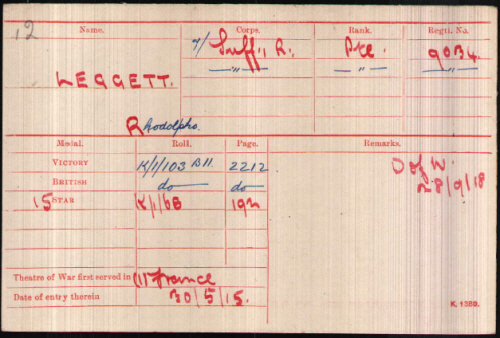 12
Name. Corps. Rank. Regtl. No.
7/ Suff. R. Pte. 9034.
—"— —"— —"—
LEGGETT.
R Rhodolpho.
Medal. Roll. Page. Remarks.
VICTORY K/1/103 B11 2212 D of W.
BRITISH do do 28/9/18
15 STAR K/1/6B 192
Theatre of War first served in (1) France
Date of entry therein 30/5/15.
K. 1380.